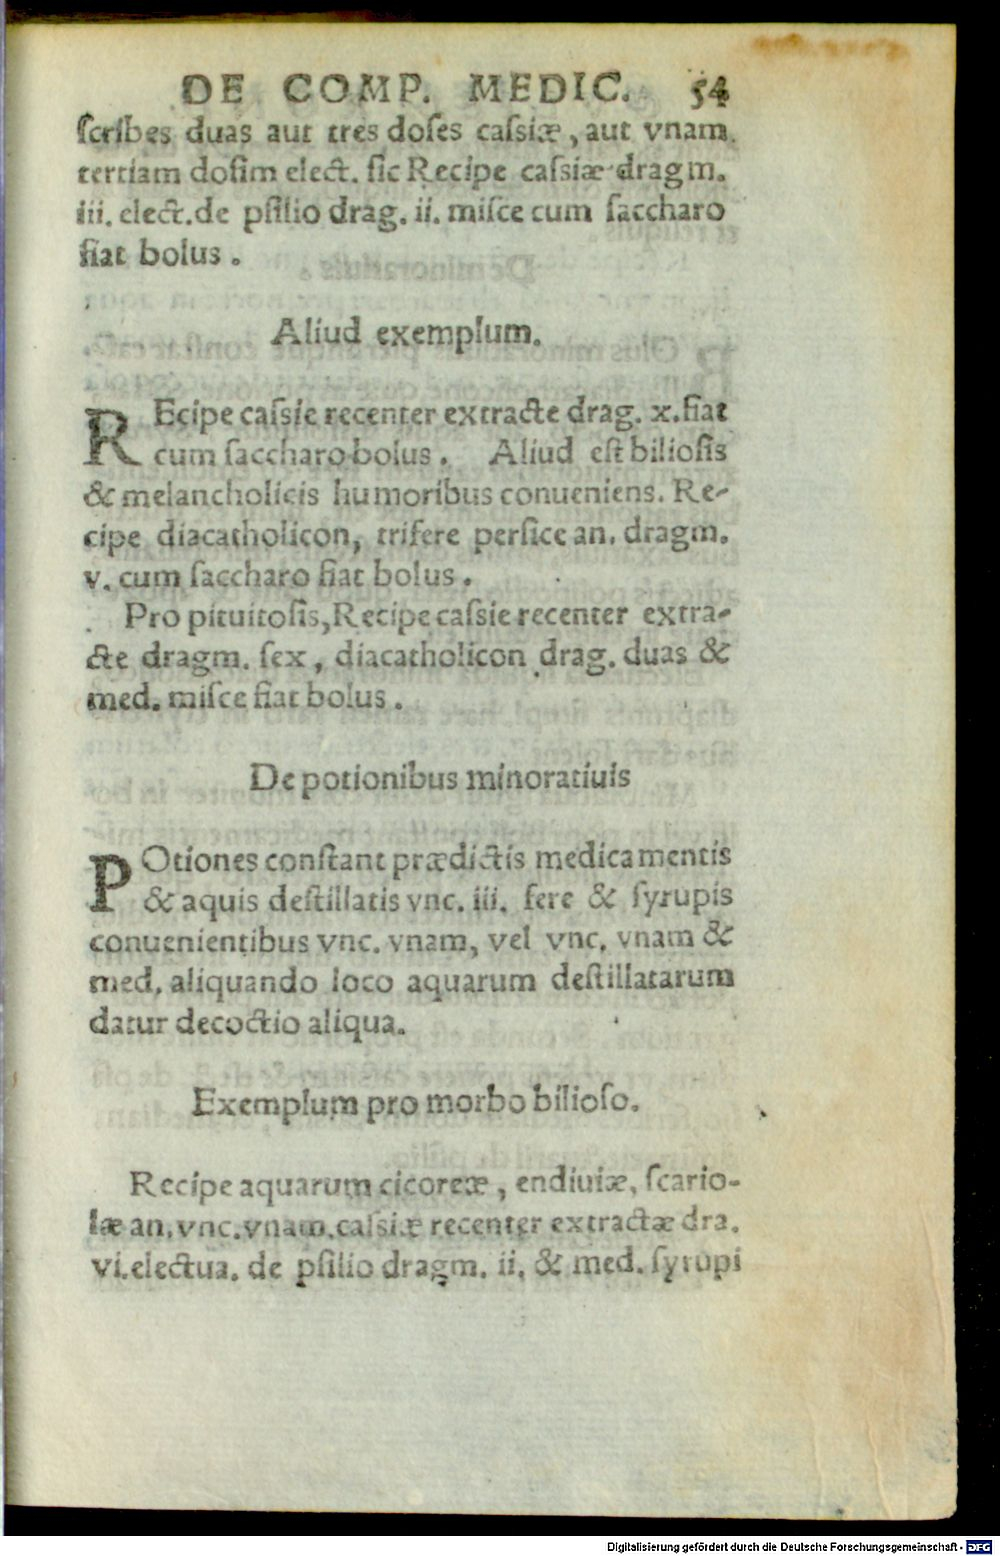 DE COMP. MEDIC. 54
ſcribes duas aut tres doſes caſsiæ, aut vnam.
tertiam doſim elect. ſic Recipe caſsiæ dragm.
iii. elect. de pſilio drag. ii. miſce cum ſaccharo
fiat bolus.
Aliud exemplum.
REcipe caſsie recenter extracte drag. x. fiat
cum ſaccharo bolus. Aliud eſt bilioſis
& melancholicis humoribus conueniens. Re-
cipe diacatholicon, trifere perſice an. dragm.
v. cum ſaccharo fiat bolus.
Pro pituitoſis, Recipe caſsie recenter extra-
cte dragm. ſex, diacatholicon drag. duas &
med. miſce fiat bolus.
De potionibus minoratiuis
POtiones conſtant prædictis medicamentis
& aquis deſtillatis vnc. iii. fere & ſyrupis
conuenientibus vnc. vnam, vel vnc. vnam &
med. aliquando loco aquarum deſtillatarum
datur decoctio aliqua.
Exemplum pro morbo bilioſo.
Recipe aquarum cicoreæ, endiuiæ, ſcario-
læ an. vnc. vnam. caſsiæ recenter extractæ dra.
vi. electua. de pſilio dragm. ii. & med. ſyrupi
Digitalisierung gefördert durch die Deutsche Forschungsgemeinschaft - DFG